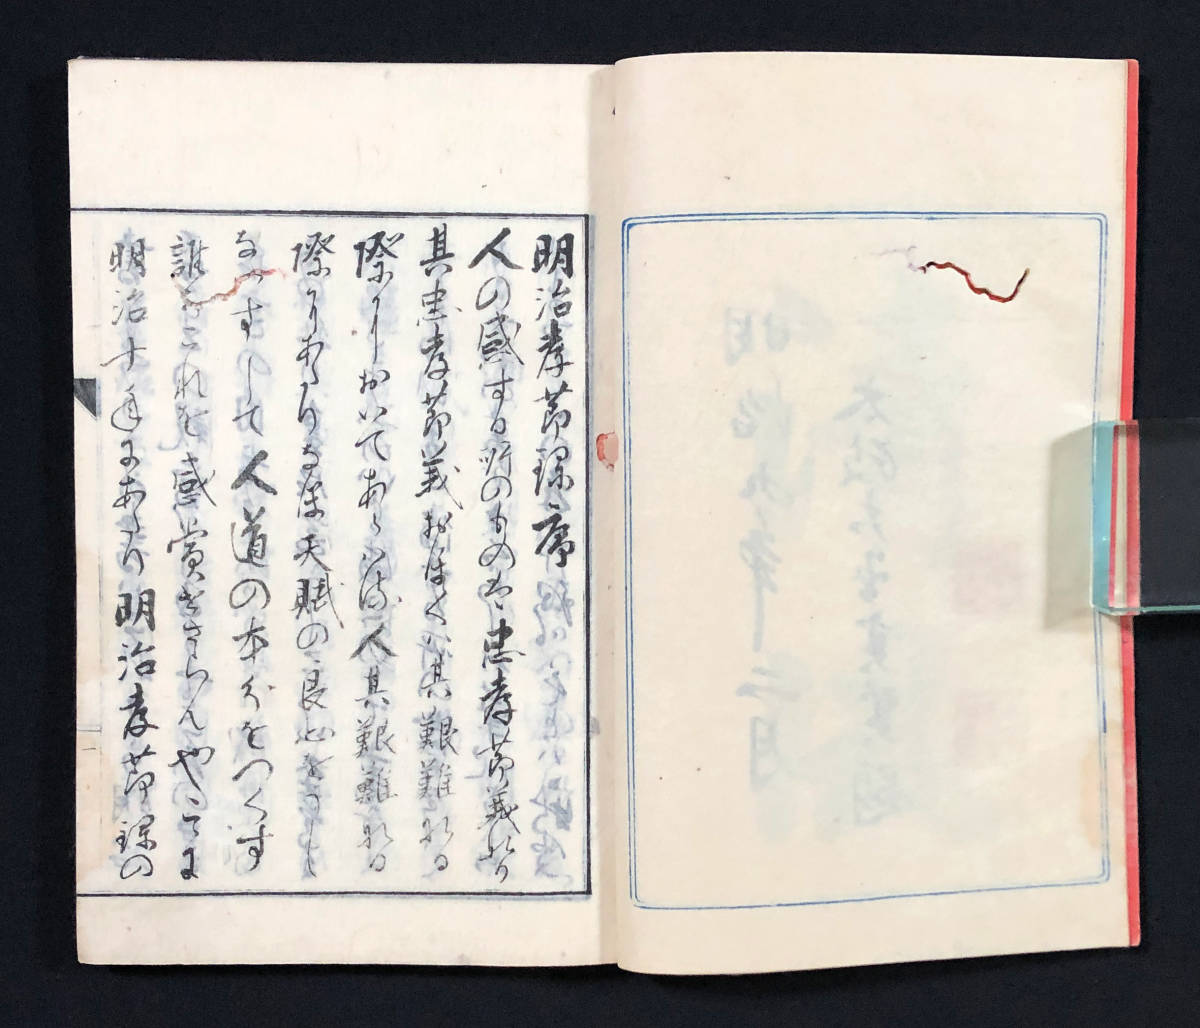 明治孝節録序
人の感する所のものは忠孝節義なり
其忠孝節義おほくは其艱難なる
際にしかいてあらはる人其艱難なる
際にあたりなほ天賦の良心を
なはすして人道の本分をつくす
誰かこれを感賞せさらんやこゝに
明治十年にあたり明治孝節録の